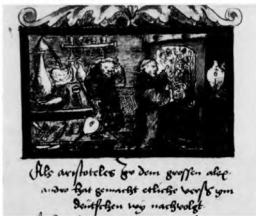 Als aristoteles zu dem grossen alex
andro hat gemacht etliche verss ym
deütschen wy nachvolgt